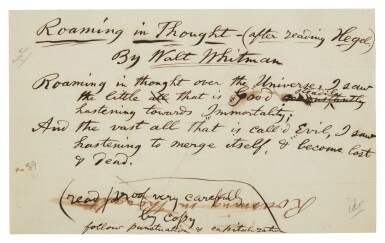 Roaming in Thought—(after reading Hegel)
By Walt Whitman
Roaming in thought over the Universe, I saw
the little that is Good steadily
hastening towards Immortality,
And the vast all that is call'd Evil, I saw
hastening to merge itself, & become lost
& dead.
(read proof very carefully
by copy
follow punctuation & capitalization